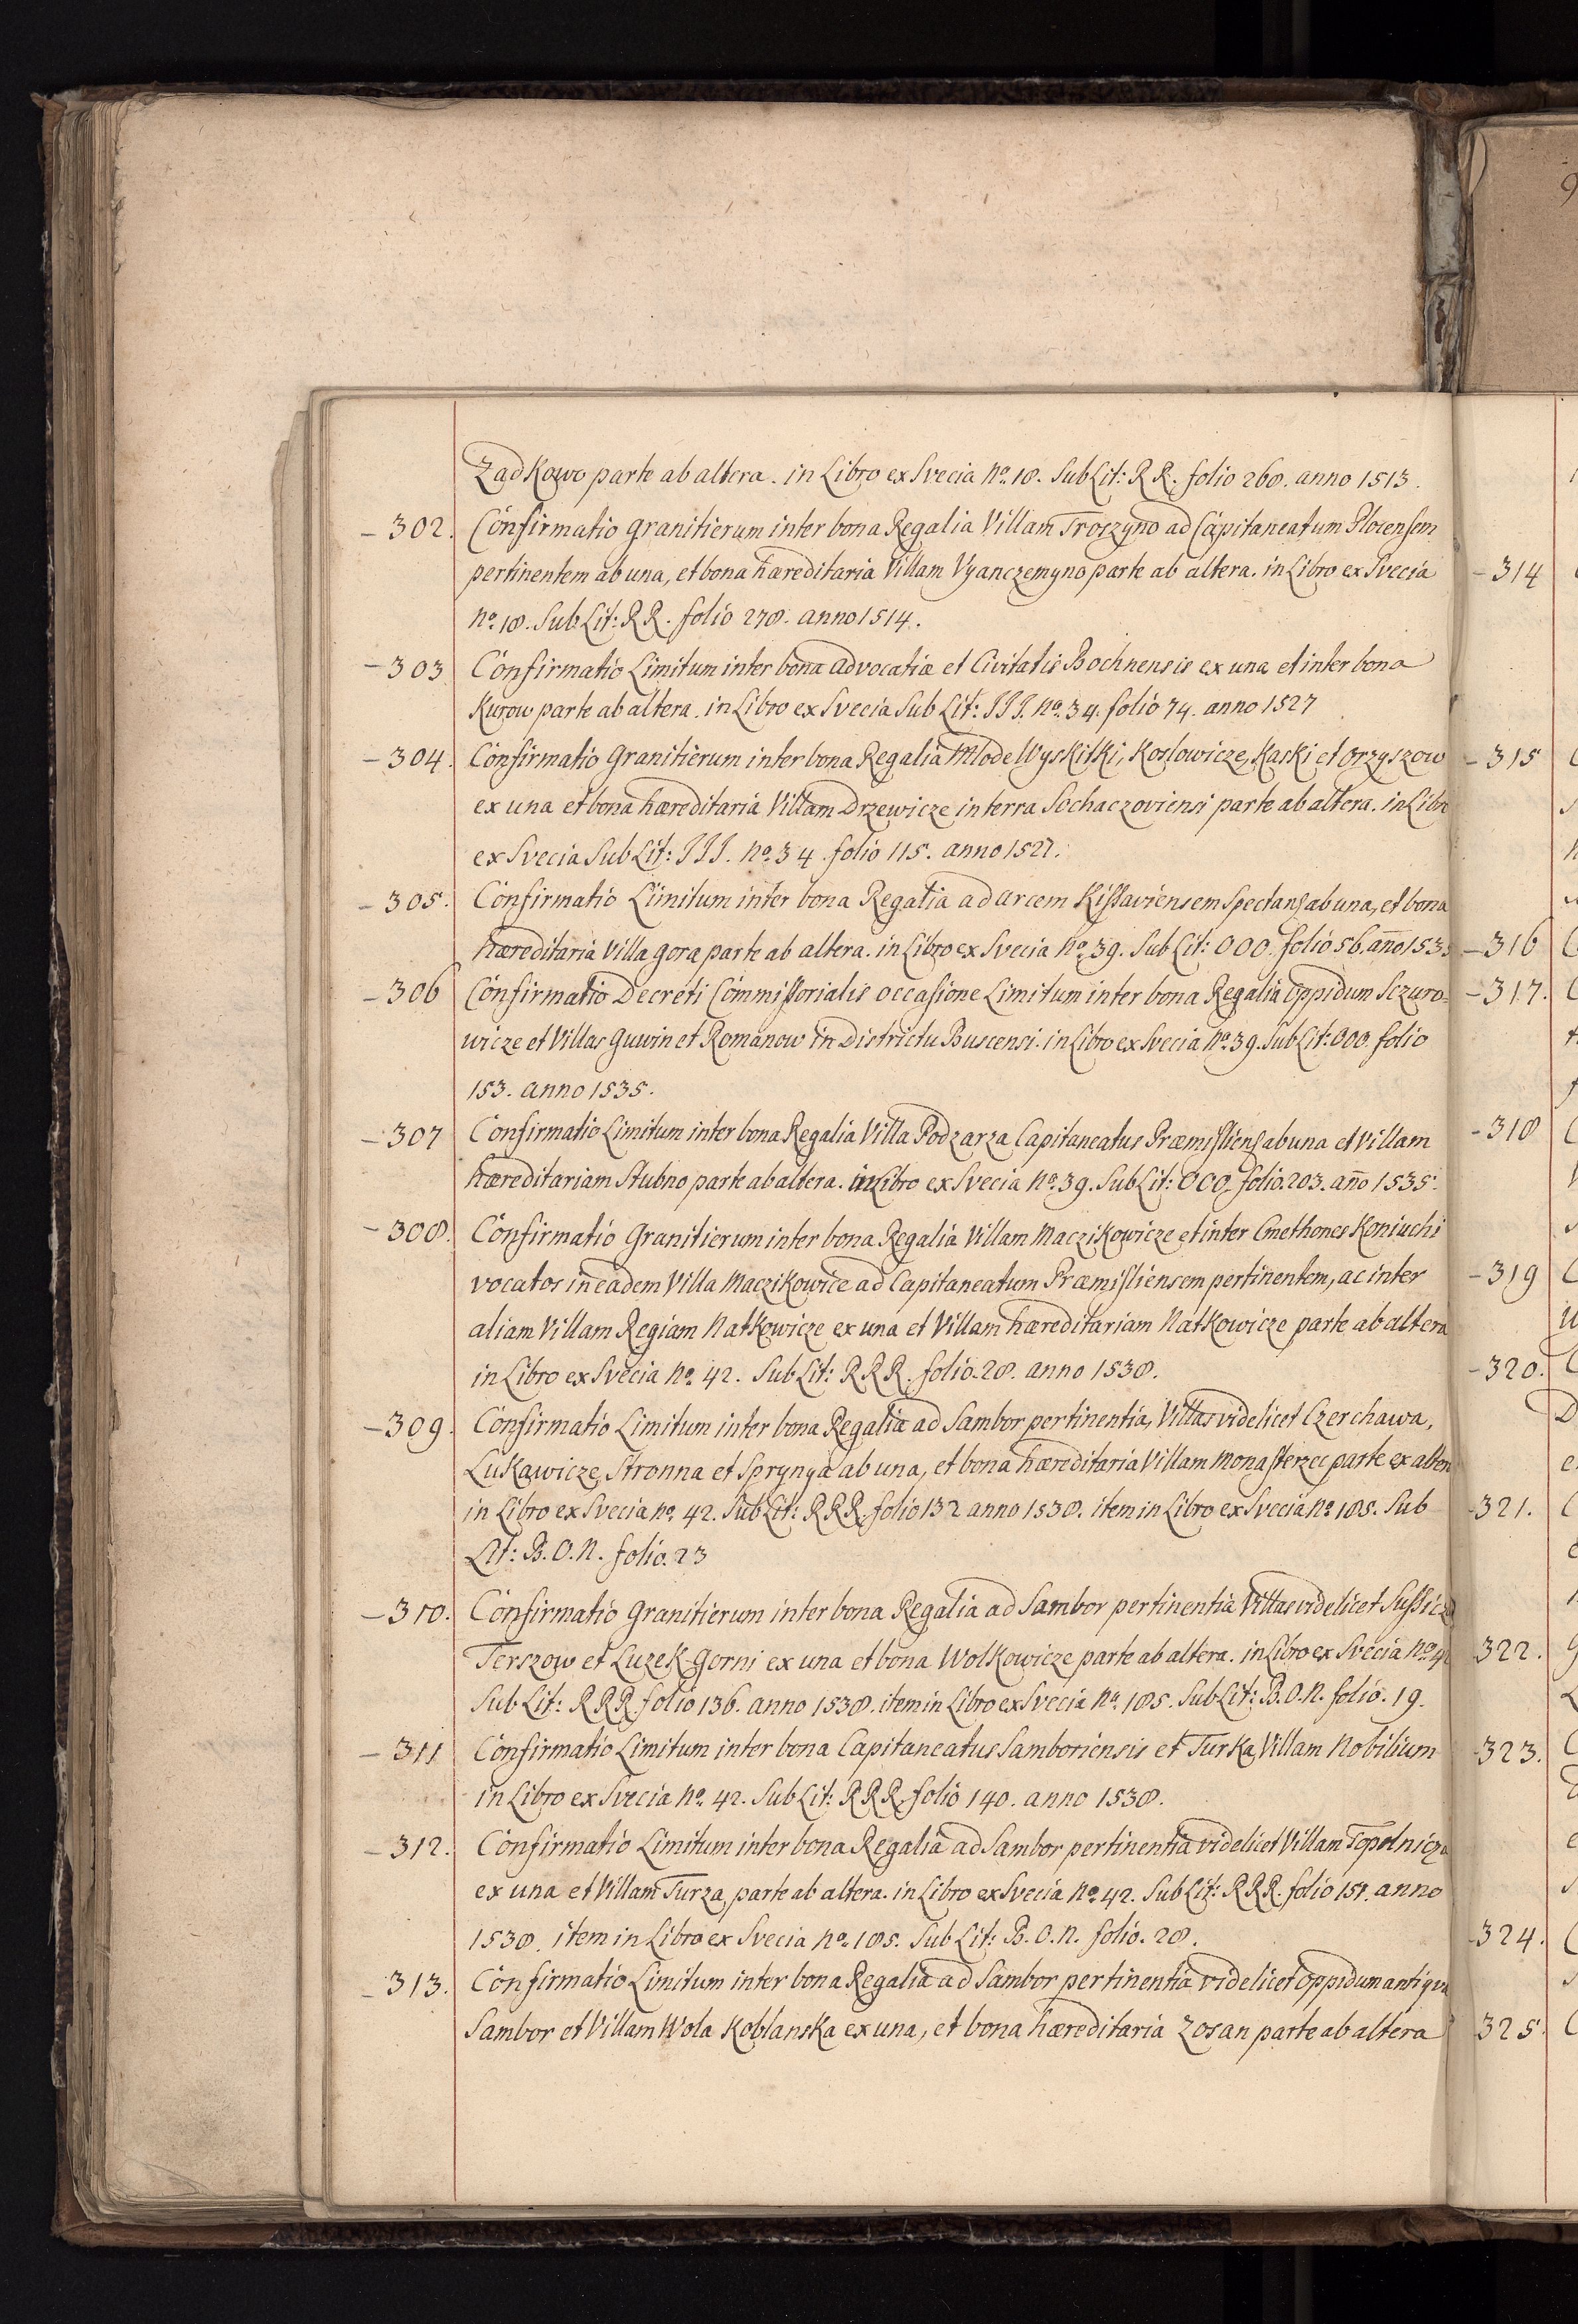 Zadkowo parte ab altera. in Libro ex Svecia No. 18. Sub Lit: RR. folio 268. anno 1513.
– 302. Confirmatio granitierum inter bona Regalia Villam Troszyno ad Capitaneatum Plocensem
pertinentem ab una, et bona hæreditaria Villam Vyanczemyno parte ab altera. in Libro ex Svecia
No. 18. Sub Lit: RR. folio 278. anno 1514.
– 303 Confirmatio Limitum inter bona advocatiæ et Civitatis Bochnensis ex una et inter bona
Kurow parte ab altera. in Libro ex Svecia Sub Lit: III. No. 34. folio 74. anno 1527
– 304. Confirmatio Granitierum inter bona Regalia Mlode Wyskitki, Koslowicze, Kaski et Orzyszow
ex una et bona hæreditaria Villam Drzewicze in terra Sochaczoviensi parte ab altera. in Libro
ex Svecia Sub Lit: III. No. 34. folio 115. anno 1527.
– 305. Confirmatio Limitum inter bona Regalia ad arcem Kissaviensem spectans ab una, et bona
hæreditaria Villa gora parte ab altera. in Libro ex Svecia No. 39. Sub Lit: OOO. folio 56. año 1535
– 306 Confirmatio Decreti Commissorialis occasione Limitum inter bona Regalia Oppidum Sczuro=
wicze et Villas Guwin et Romanow in Districtu Buscensi. in Libro ex Svecia No. 39. Sub Lit: OOO. folio
153. anno 1535.
– 307 Confirmatio Limitum inter bona Regalia Villa Podzarza Capitaneatus Præmisliens ab una et Villam
hæreditariam Stubno parte ab altera. in Libro ex Svecia No. 39. Sub Lit: OOO. folio. 203. año 1535.
– 308. Confirmatio Granitierum inter bona Regalia Villam Maczikowicze et inter Cmethones Koniuchi
vocatos in eadem Villa Maczikowice ad Capitaneatum Præmisliensem pertinentem, ac inter
aliam Villam Regiam Natkowicze ex una et Villam hæreditariam Natkowicze parte ab altera
in Libro ex Svecia No. 42. Sub Lit: RRR. folio. 28. anno 1538.
– 309. Confirmatio Limitum inter bona Regalia ad Sambor pertinentia, Villas videlicet Czerchawa,
Lukawicze, Stronna et Sprynya ab una, et bona hæreditaria Villam Monasterzec parte ex altera
in Libro ex Svecia No. 42. Sub Lit: RRR. folio 132 anno 1538. item in Libro ex Svecia No. 185. Sub
Lit: B. O. N. folio. 23
– 310. Confirmatio Granitierum inter bona Regalia ad Sambor pertinentia Villas videlicet Sussicza
Terszow et Luzek Gorni ex una et bona Wolkowicze parte ab altera. in Libro ex Svecia No. 42
Sub Lit: RRR. folio 136. anno 1538. item in Libro ex Svecia No. 185. Sub Lit: B. O. N. folio. 19.
– 311 Confirmatio Limitum inter bona Capitaneatus Samboriensis et Turka, Villam Nobilium
in Libro ex Svecia No. 42. Sub Lit: RRR. folio 140. anno 1538.
– 312. Confirmatio Limitum inter bona Regalia ad Sambor pertinentia videlicet Villam Topolnicza
ex una et Villam Turza, parte ab altera. in Libro ex Svecia No. 42. Sub Lit: RRR. folio 151. anno
1538. item in Libro ex Svecia No. 185. Sub Lit: B. O. N. folio. 28.
– 313. Confirmatio Limitum inter bona Regalia ad Sambor pertinentia videlicet Oppidum antiqua
Sambor et Villam Wola Koblanska ex una, et bona hæreditaria Zosan parte ab altera
9
– 314
– 315
– 316
– 317.
– 318
– 319
– 320.
321.
322.
323.
324.
325.